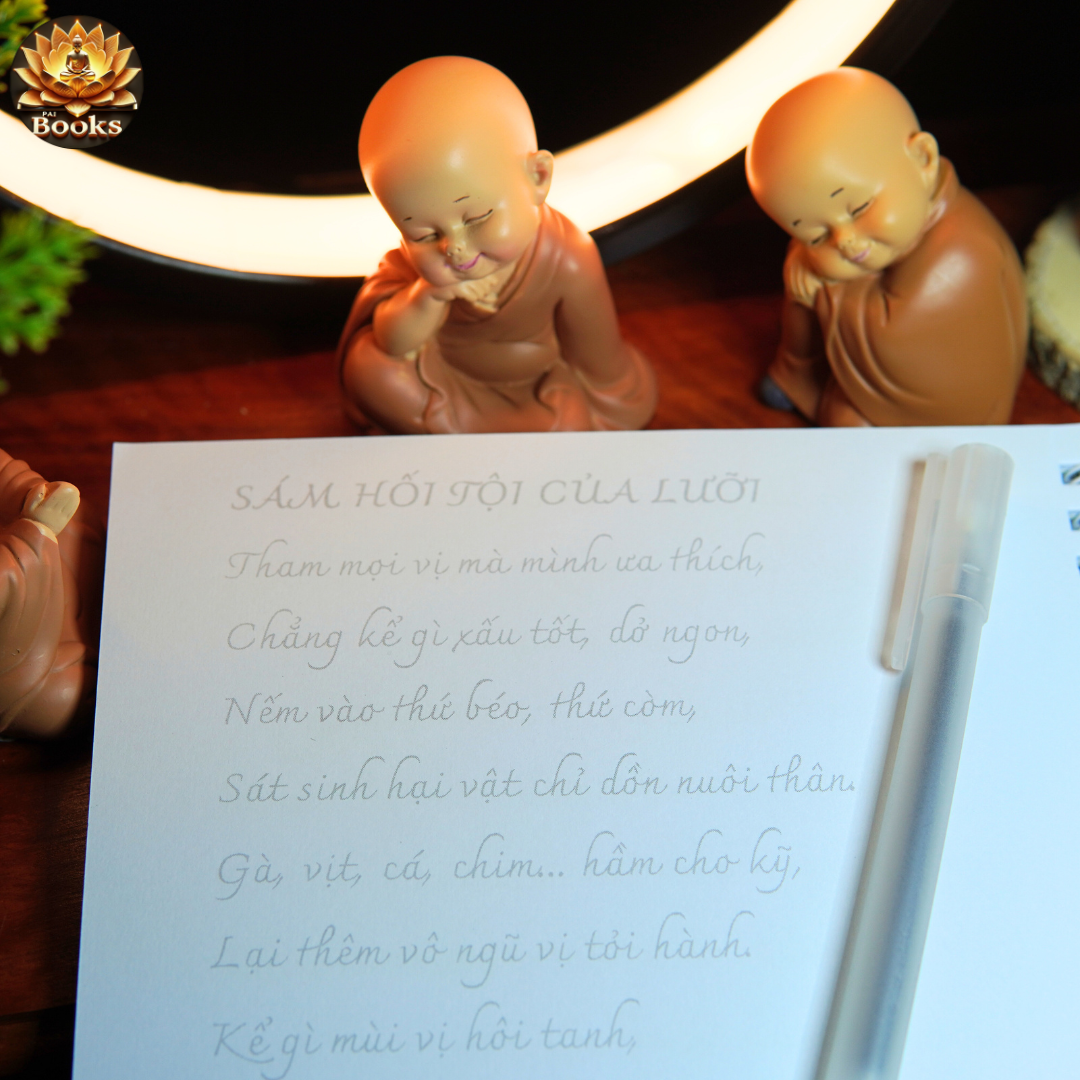 PAI
Books
SÁM HỐI TỘI CỦA LƯỠI
Tham mọi vị mà mình ưa thích,
Chẳng kể gì xấu tốt, dở ngon,
Nếm vào thứ béo, thứ còm,
Sát sinh hại vật chỉ dồn nuôi thân.
Gà, vịt, cá, chim... hầm cho kỹ,
Lại thêm vô ngũ vị tỏi hành.
Kể gì mùi vị hôi tanh,